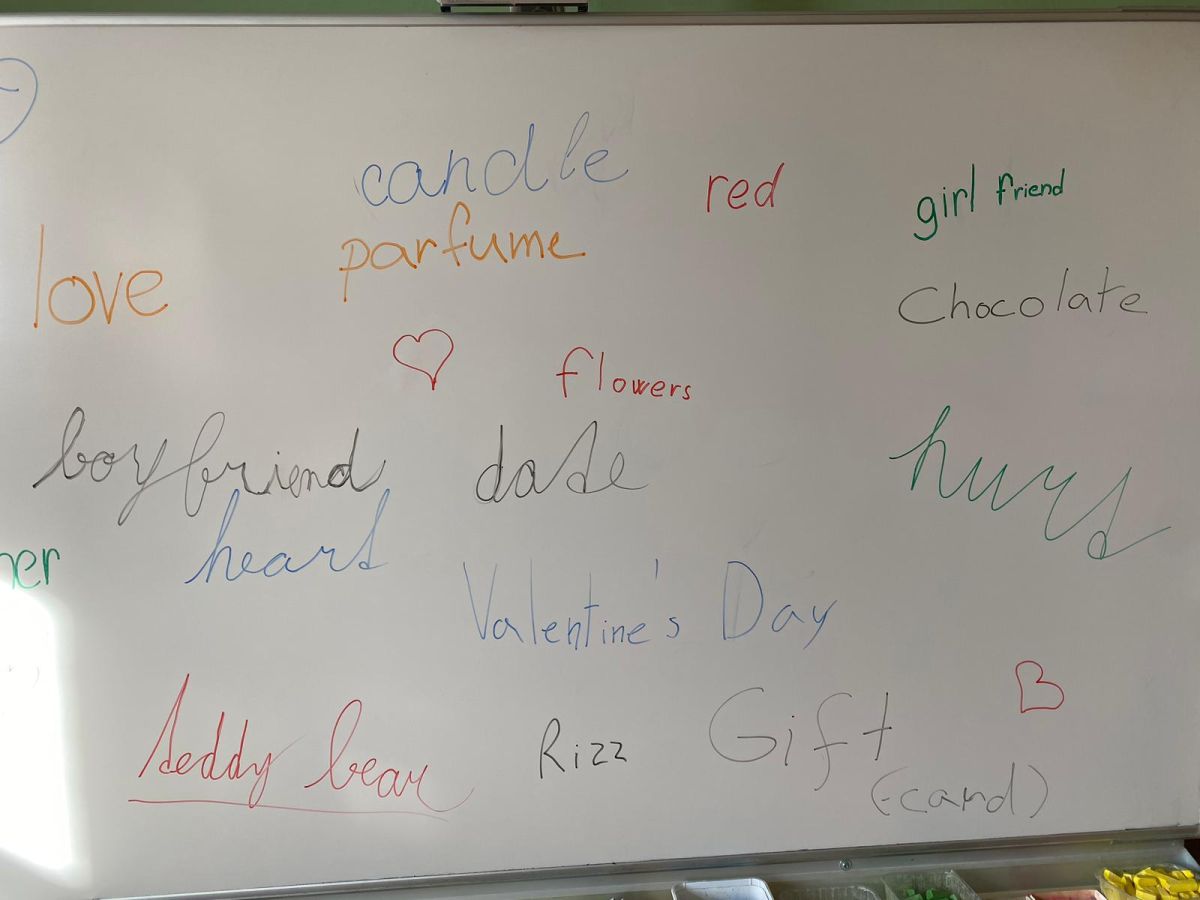 candle
red
girl friend
parfume
love
Chocolate
flowers
boyfriend
date
hurt
heart
Valentine's Day
teddy bear
Rizz
Gift
(-card)